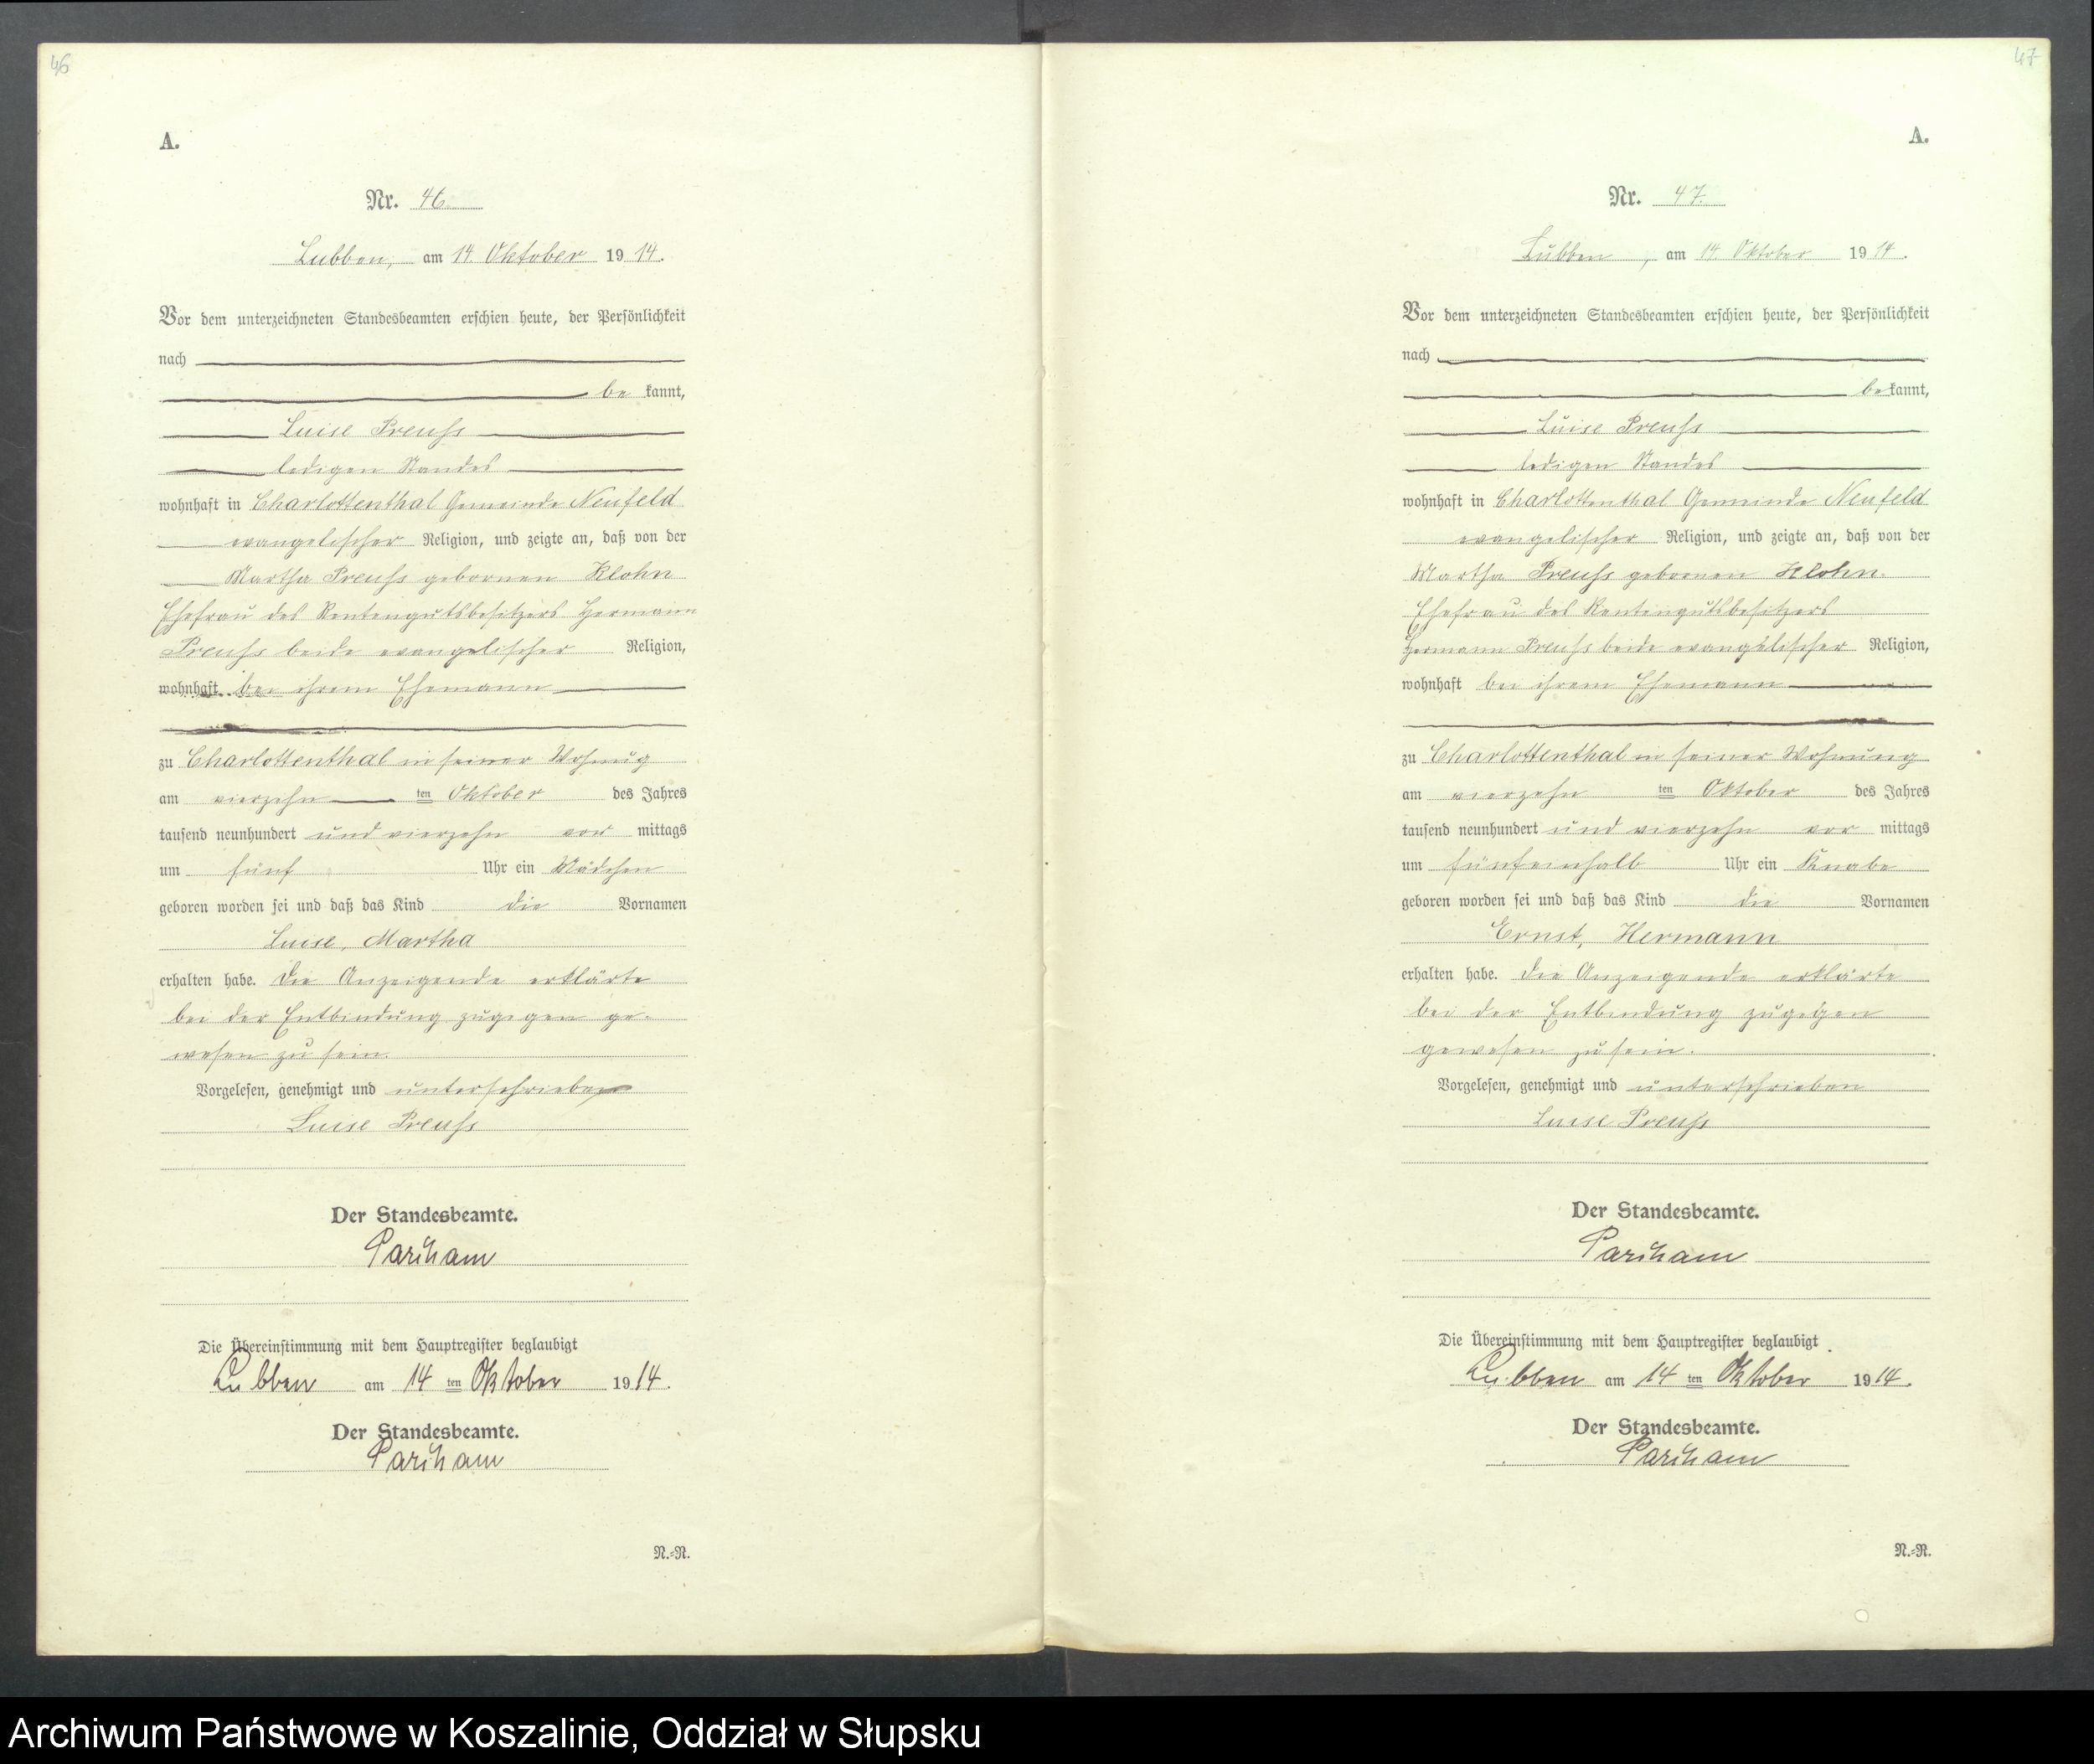 46
A.
Nr. 46.
Lubben, am 14. Oktober 1914.
Vor dem unterzeichneten Standesbeamten erschien heute, der Persönlichkeit
nach
be kannt,
Luise Preuß
ledigen Standes
wohnhaft in Charlottenthal Gemeinde Neufeld
evangelischer Religion, und zeigte an, daß von der
Martha Preuß geborenen Klohn
Ehefrau des Rentengutsbesitzers Hermann
Preuß beide evangelischer Religion,
wohnhaft bei ihrem Ehemann
zu Charlottenthal in seiner Wohnug
am vierzehn ten Oktober des Jahres
tausend neunhundert und vierzehn vor mittags
um fünf Uhr ein Mädchen
geboren worden sei und daß das Kind die Vornamen
Luise, Martha
erhalten habe. Die Anzeigende erklärte
bei der Entbindung zugegen ge-
wesen zu sein.
Vorgelesen, genehmigt und unterschrieben
Luise Preuß
Der Standesbeamte.
Der Übereinstimmung mit dem Hauptregister beglaubigt
Lubben am 14 ten Oktober 1914.
Der Standesbeamte.
N.=R.
47
A.
Nr. 47.
Lubben, am 14. Oktober 1914.
Vor dem unterzeichneten Standesbeamten erschien heute, der Persönlichkeit
nach
be kannt,
Luise Preuß
ledigen Standes
wohnhaft in Charlottenthal Gemeinde Neufeld
evangelischer Religion, und zeigte an, daß von der
Martha Preuß geborenen Klohn.
Ehefrau des Rentengutsbesitzers
Hermann Preuß beide evangelischer Religion,
wohnhaft bei ihrem Ehemann
zu Charlottenthal in seiner Wohnung
am vierzehn ten Oktober des Jahres
tausend neunhundert und vierzehn vor mittags
um fünfeinhalb Uhr ein Knabe
geboren worden sei und daß das Kind die Vornamen
Ernst, Hermann
erhalten habe. Die Anzeigende erklärte
bei der Entbindung zugegen
gewesen zu sein.
Vorgelesen, genehmigt und unterschrieben
Luise Preuß
Der Standesbeamte.
Die Übereinstimmung mit dem Hauptregister beglaubigt
Lubben am 14 ten Oktober 1914.
Der Standesbeamte.
N.=R.
Archiwum Państwowe w Koszalinie, Oddział w Słupsku